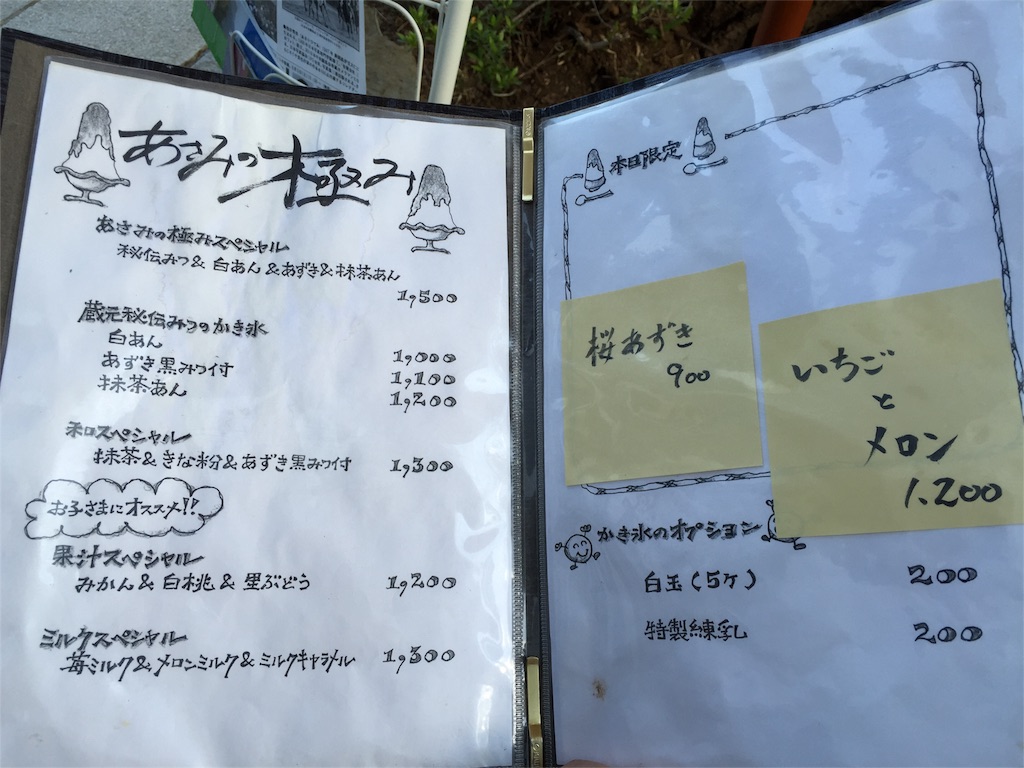 あさみの極み
あさみの極みスペシャル
秘伝みつ&白あん&あずき&抹茶あん
1,500
蔵元秘伝みつのかき氷
白あん 1,000
あずき黒みつ付 1,100
抹茶あん 1,200
和スペシャル
抹茶&きな粉&あずき黒みつ付 1,300
お子さまにオススメ!!
果汁スペシャル
みかん&白桃&黒ぶどう 1,200
ミルクスペシャル
苺ミルク&メロンミルク&ミルクキャラメル 1,300
本日限定
桜あずき
900
いちご
と
メロン
1.200
かき氷のオプション
白玉(5ケ) 200
特製練乳 200